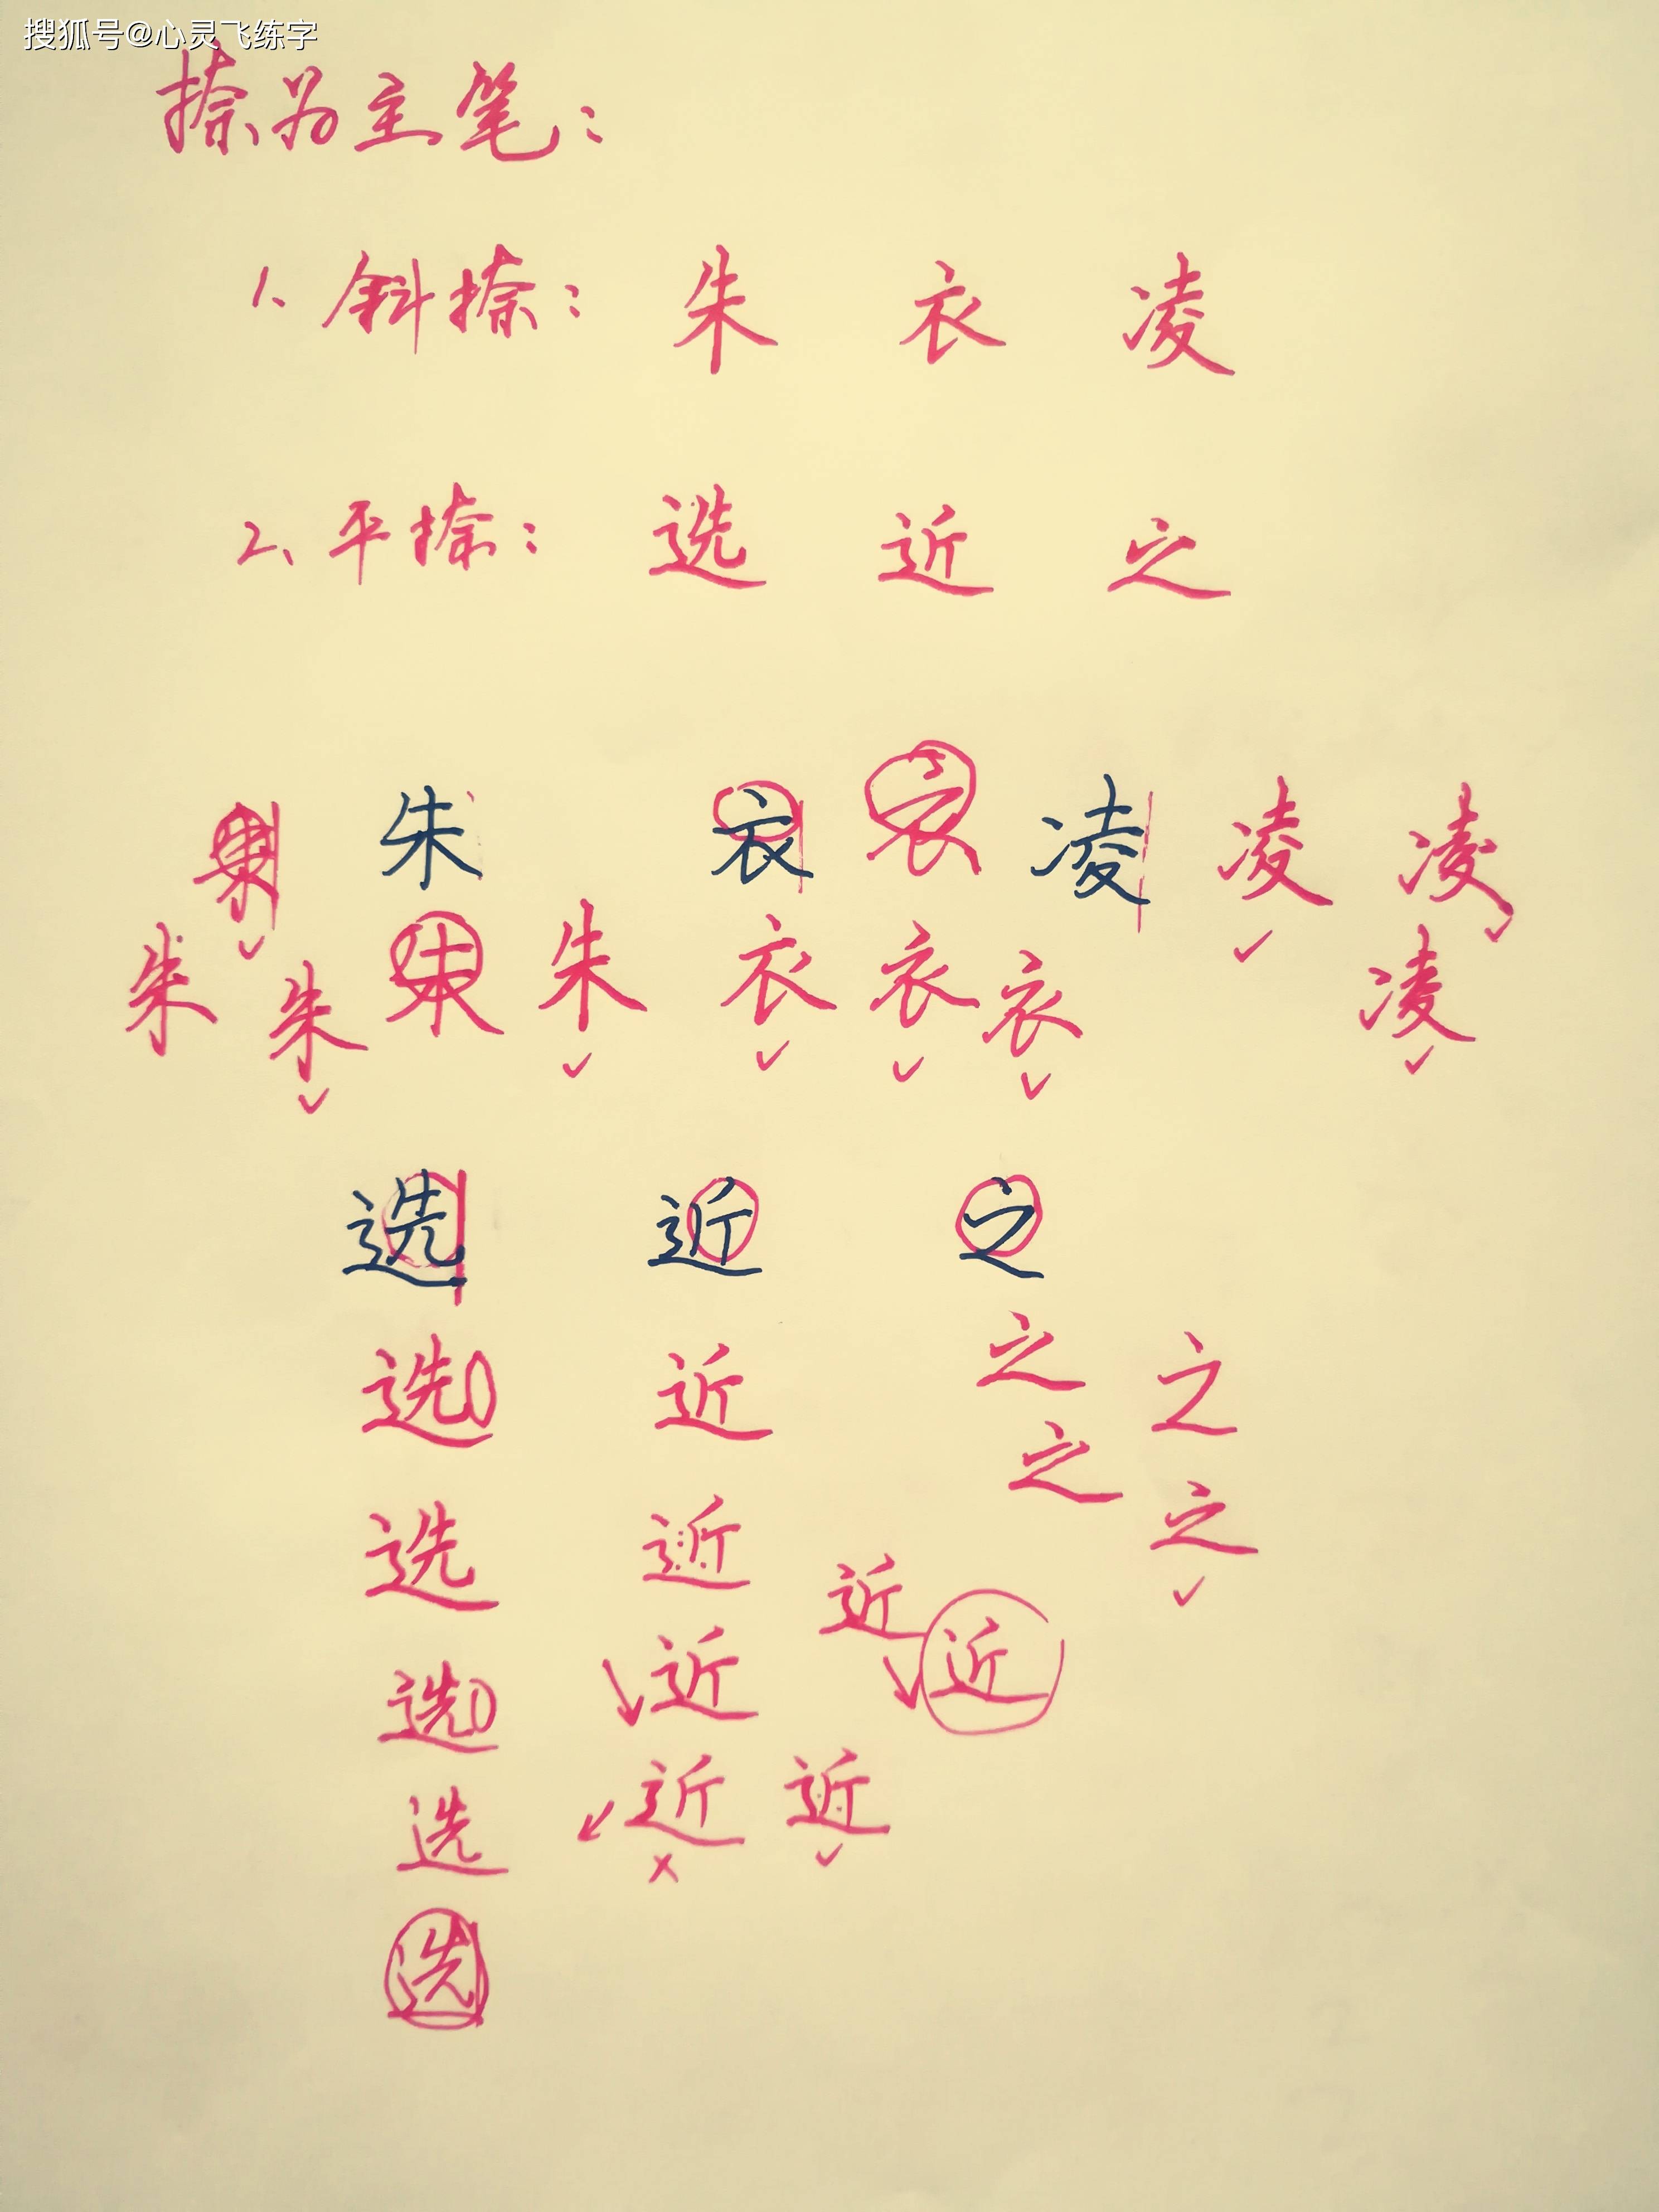 搜狐号@心灵飞练字
捺为主笔：
1、斜捺：朱 衣 凌
2、平捺：选 近 之
朱 朱 衣 衣 凌 凌 凌
朱 朱 朱 朱 衣 衣 衣 凌
选 近 之
选 近 之 之
之
选 近 之
近
选 近 近
选 近 近
选